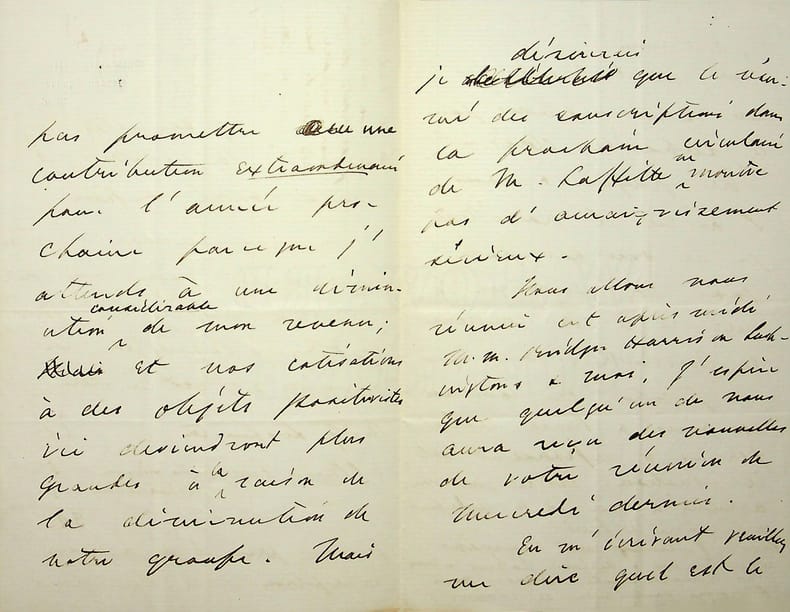 pas promettre une
contribution extraordinaire
pour l'année pro-
chaine parceque j'
attends à une diminu-
ution considérable de mon revenu;
Et nos cotisations
à des objets positivistes
ici deviendront plus
grandes à la raison de
la diminution de
notre groupe. Mais
je désirerais que le résu-
mé des souscriptions dans
la prochain circulaire
de M. Laffitte ne montre
pas d'amoindrissement
sérieux.
Nous allons nous
réunir cet après midi
M.M. Bridges Harrison Lush-
ingtons & moi. J'espère
que quelqu'un de nous
aura reçu des nouvelles
de votre réunion de
Mercredi dernier.
En m'écrivant veuillez
me dire quel est le